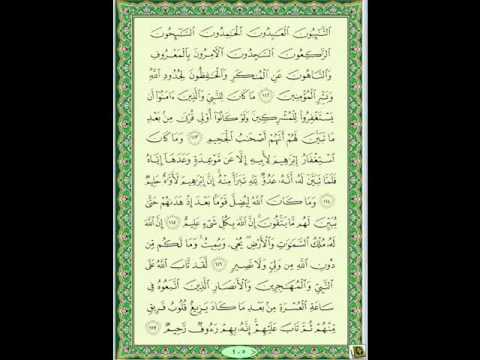 التَّائِبُونَ الْعَابِدُونَ الْحَامِدُونَ السَّائِحُونَ
الرَّاكِعُونَ السَّاجِدُونَ الْآمِرُونَ بِالْمَعْرُوفِ
وَالنَّاهُونَ عَنِ الْمُنكَرِ وَالْحَافِظُونَ لِحُدُودِ اللَّهِ
وَبَشِّرِ الْمُؤْمِنِينَ ١١٢ مَا كَانَ لِلنَّبِيِّ وَالَّذِينَ ءَامَنُوا أَن
يَسْتَغْفِرُوا لِلْمُشْرِكِينَ وَلَوْ كَانُوا أُولِي قُرْبَىٰ مِن بَعْدِ
مَا تَبَيَّنَ لَهُمْ أَنَّهُمْ أَصْحَابُ الْجَحِيمِ ١١٣ وَمَا كَانَ
اسْتِغْفَارُ إِبْرَاهِيمَ لِأَبِيهِ إِلَّا عَن مَّوْعِدَةٍ وَعَدَهَا إِيَّاهُ
فَلَمَّا تَبَيَّنَ لَهُ أَنَّهُ عَدُوٌّ لِّلَّهِ تَبَرَّأَ مِنْهُ إِنَّ إِبْرَاهِيمَ لَأَوَّاهٌ حَلِيمٌ
١١٤ وَمَا كَانَ اللَّهُ لِيُضِلَّ قَوْمًا بَعْدَ إِذْ هَدَاهُمْ حَتَّىٰ
يُبَيِّنَ لَهُم مَّا يَتَّقُونَ إِنَّ اللَّهَ بِكُلِّ شَيْءٍ عَلِيمٌ ١١٥ إِنَّ اللَّهَ
لَهُ مُلْكُ السَّمَاوَاتِ وَالْأَرْضِ يُحْيِي وَيُمِيتُ وَمَا لَكُم مِّن
دُونِ اللَّهِ مِن وَلِيٍّ وَلَا نَصِيرٍ ١١٦ لَّقَد تَّابَ اللَّهُ عَلَى
النَّبِيِّ وَالْمُهَاجِرِينَ وَالْأَنصَارِ الَّذِينَ اتَّبَعُوهُ فِي
سَاعَةِ الْعُسْرَةِ مِن بَعْدِ مَا كَادَ يَزِيغُ قُلُوبُ فَرِيقٍ
مِّنْهُمْ ثُمَّ تَابَ عَلَيْهِمْ إِنَّهُ بِهِمْ رَءُوفٌ رَّحِيمٌ ١١٧
٢٠٥